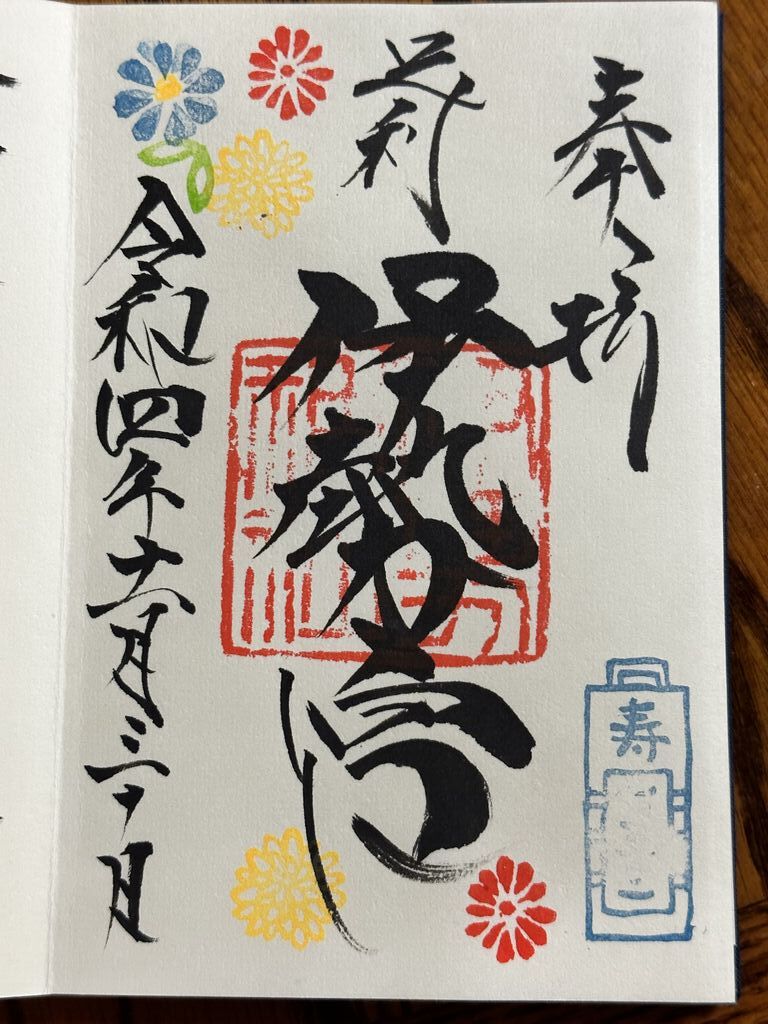 奉拝
足利
伊勢宮
令和四年十一月三十日
寿